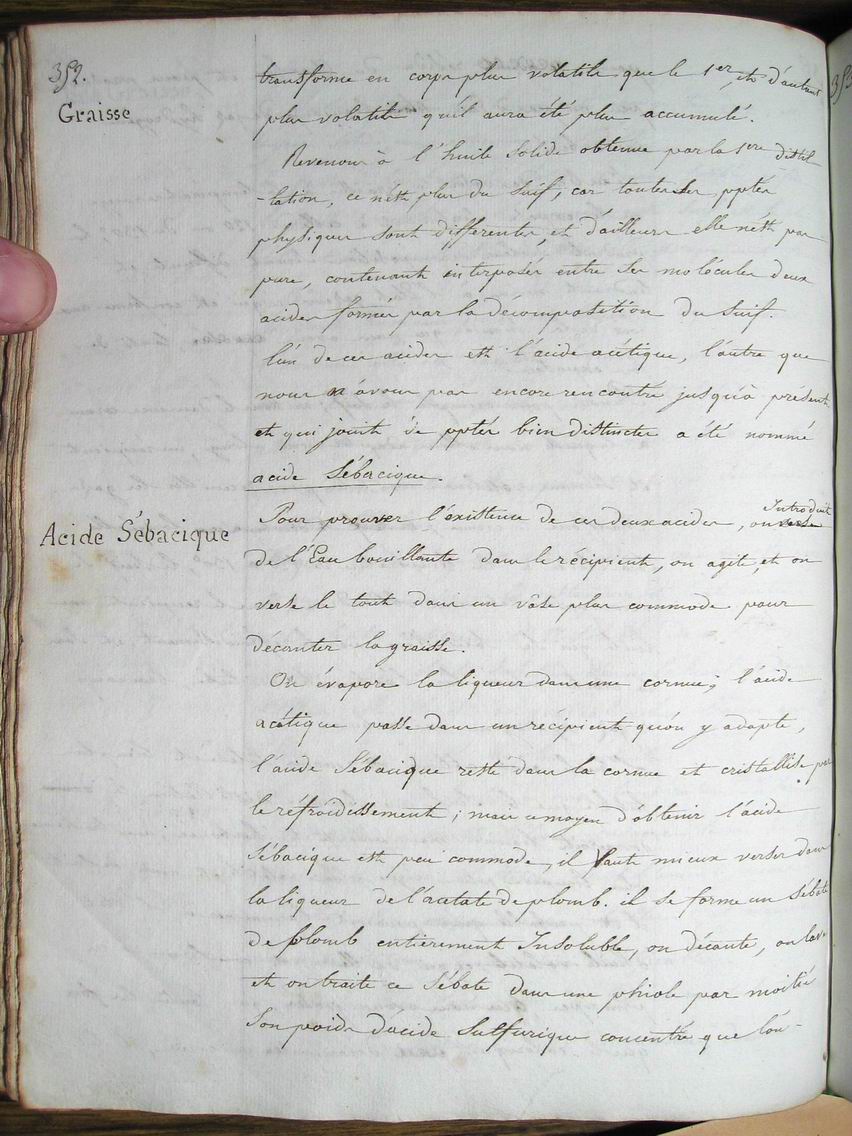 352.
Graisse
transforme en corps plus volatils que le 1er, et d'autant
plus volatils qu'il aura été plus accumulé.
Revenons à l'huile solide obtenue par la 1ere distil
-lation, ce n'est plus du suif, car toutes ses pptés
physiques sont differentes, et d'ailleurs elle n'est pas
pure, contenant interposés entre ses molécules deux
acides formés par la décomposition du suif.
l'un de ces acides est l'acide acétique, l'autre que
nous n'avons pas encore rencontré jusqu'à présent
et qui jouit de pptés bien distinctes a été nommé
acide Sébacique.
Acide Sébacique
Pour prouver l'existence de ces deux acides, on Introduit
de l'Eau bouillante dans le récipient, on agite, et on
verse le tout dans un vase plus commode pour
décanter la graisse.
On évapore la liqueur dans une cornue; l'acide
acétique passe dans un récipient qu'on y adapte,
l'acide Sébacique reste dans la cornue et cristallise par
le réfroidissement; mais ce moyen d'obtenir l'acide
Sébacique est peu commode, il Vaut mieux verser dans
la liqueur de l'acétate de plomb. il se forme un Sébate
de plomb entièrement Insoluble, on décante, on lave
et on traite ce Sébate dans une phiole par moitié
Son poids d'acide Sulfurique concentré que l'on-